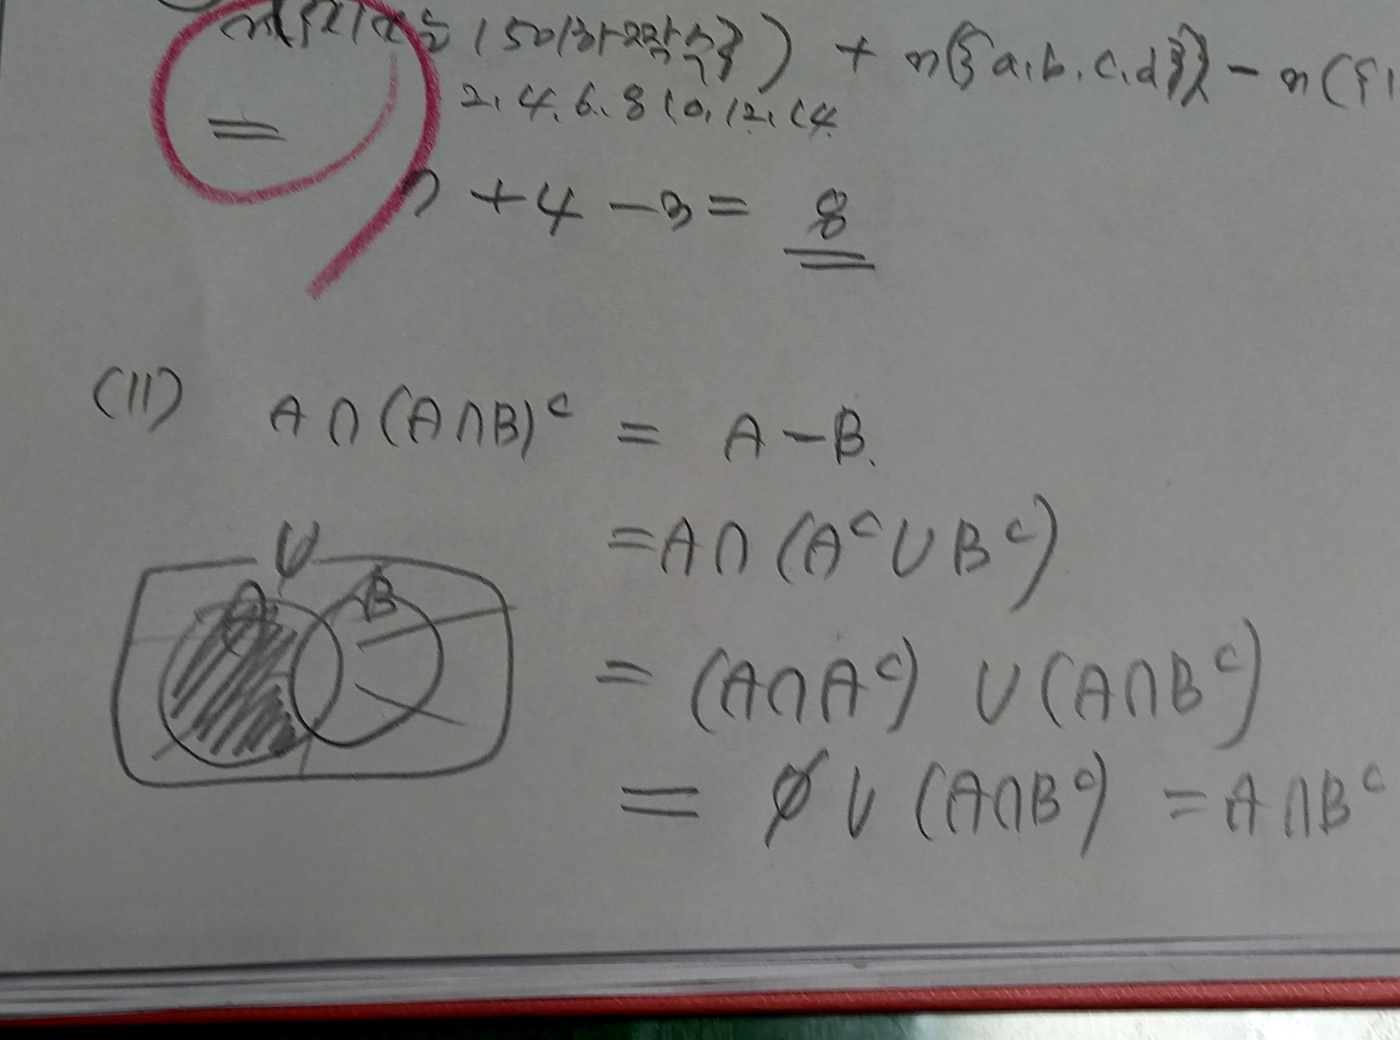 n({x|x는 15이하 짝수}) + n({a,b,c,d}) - n({1
2, 4, 6, 8 10, 12, 14
7 + 4 - 3 = 8
(11) A∩(A∩B)ᶜ = A-B.
=A∩(Aᶜ∪Bᶜ)
U
A B
= (A∩Aᶜ) ∪ (A∩Bᶜ)
= ∅∪(A∩Bᶜ) = A∩Bᶜ